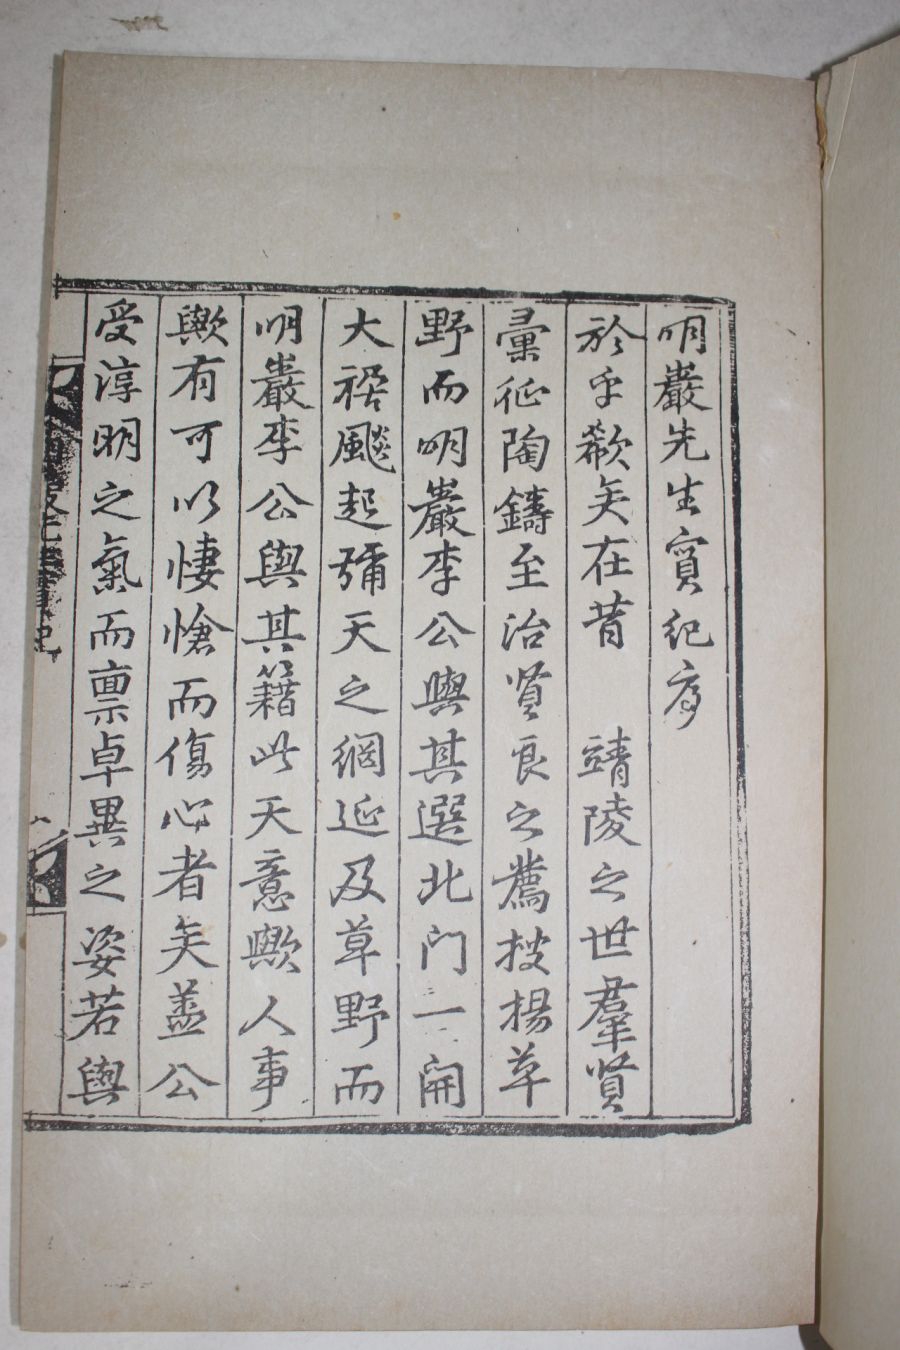 明巖先生實紀序
於乎欷矣在昔　靖陵之世羣賢
彙征陶鑄至治賢良之薦搜揚草
野而明巖李公與其選北門一開
大禍颷起彌天之網延及草野而
明巖李公與其籍此天意歟人事
歟有可以悽愴而傷心者矣盖公
受淳明之氣而稟卓異之姿若與